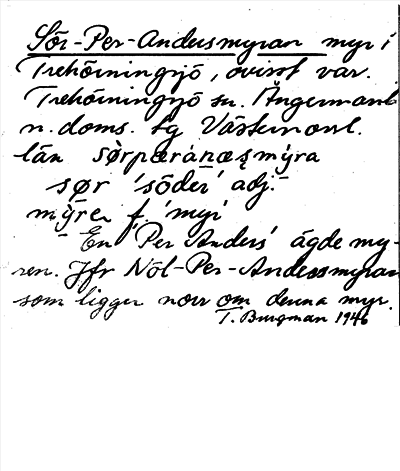 Sör-Per-Andersmyran myr i
Trehörningsjö, ovisst var.
Trehörningsjö sn. Ångermanl
n. doms. lg Västernorrl.
län sørpæranæsmyra
sør 'söder' adj.
myren f. 'myr'
En 'Per Anders' ägde my-
ren. Jfr Nol-Per-Andersmyran
som ligger norr om denna myr.
T. Burgman 1946